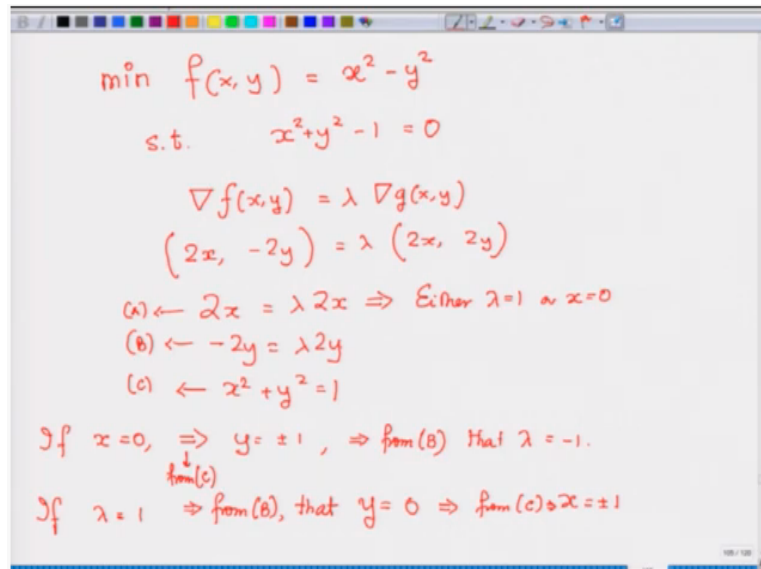 B I
min f(x, y) = x² - y²
s.t. x² + y² - 1 = 0
∇f(x,y) = λ ∇g(x,y)
(2x, -2y) = λ (2x, 2y)
(A) ← 2x = λ 2x ⇒ Either λ=1 or x=0
(B) ← -2y = λ2y
(C) ← x² + y² = 1
If x = 0, ⇒ y = ±1, ⇒ from (B) that λ = -1.
↓
from (C)
If λ = 1 ⇒ from (B), that y = 0 ⇒ from (C) x = ±1
105 / 120